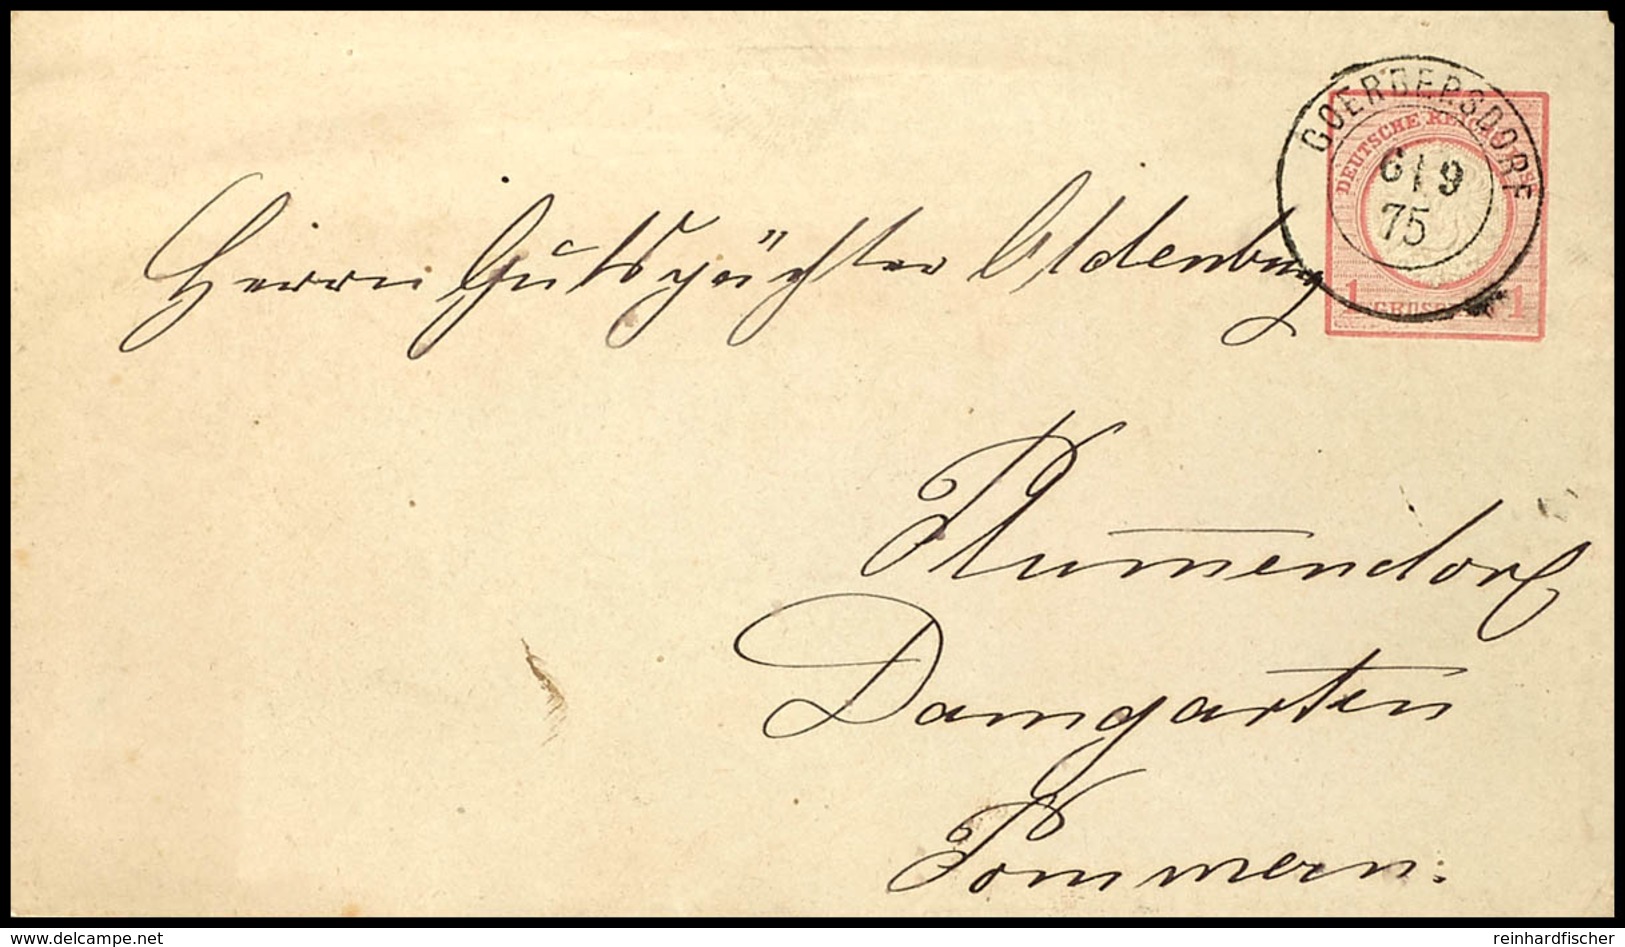 GOERBERSDORF
6 | 9
75
DEUTSCHE REICHS
1 GROSCHEN 1
Herrn Gutspächter Oldenburg
Plummendorf
Damgarten
Pommern.
delcampe.net
reinhardfischer